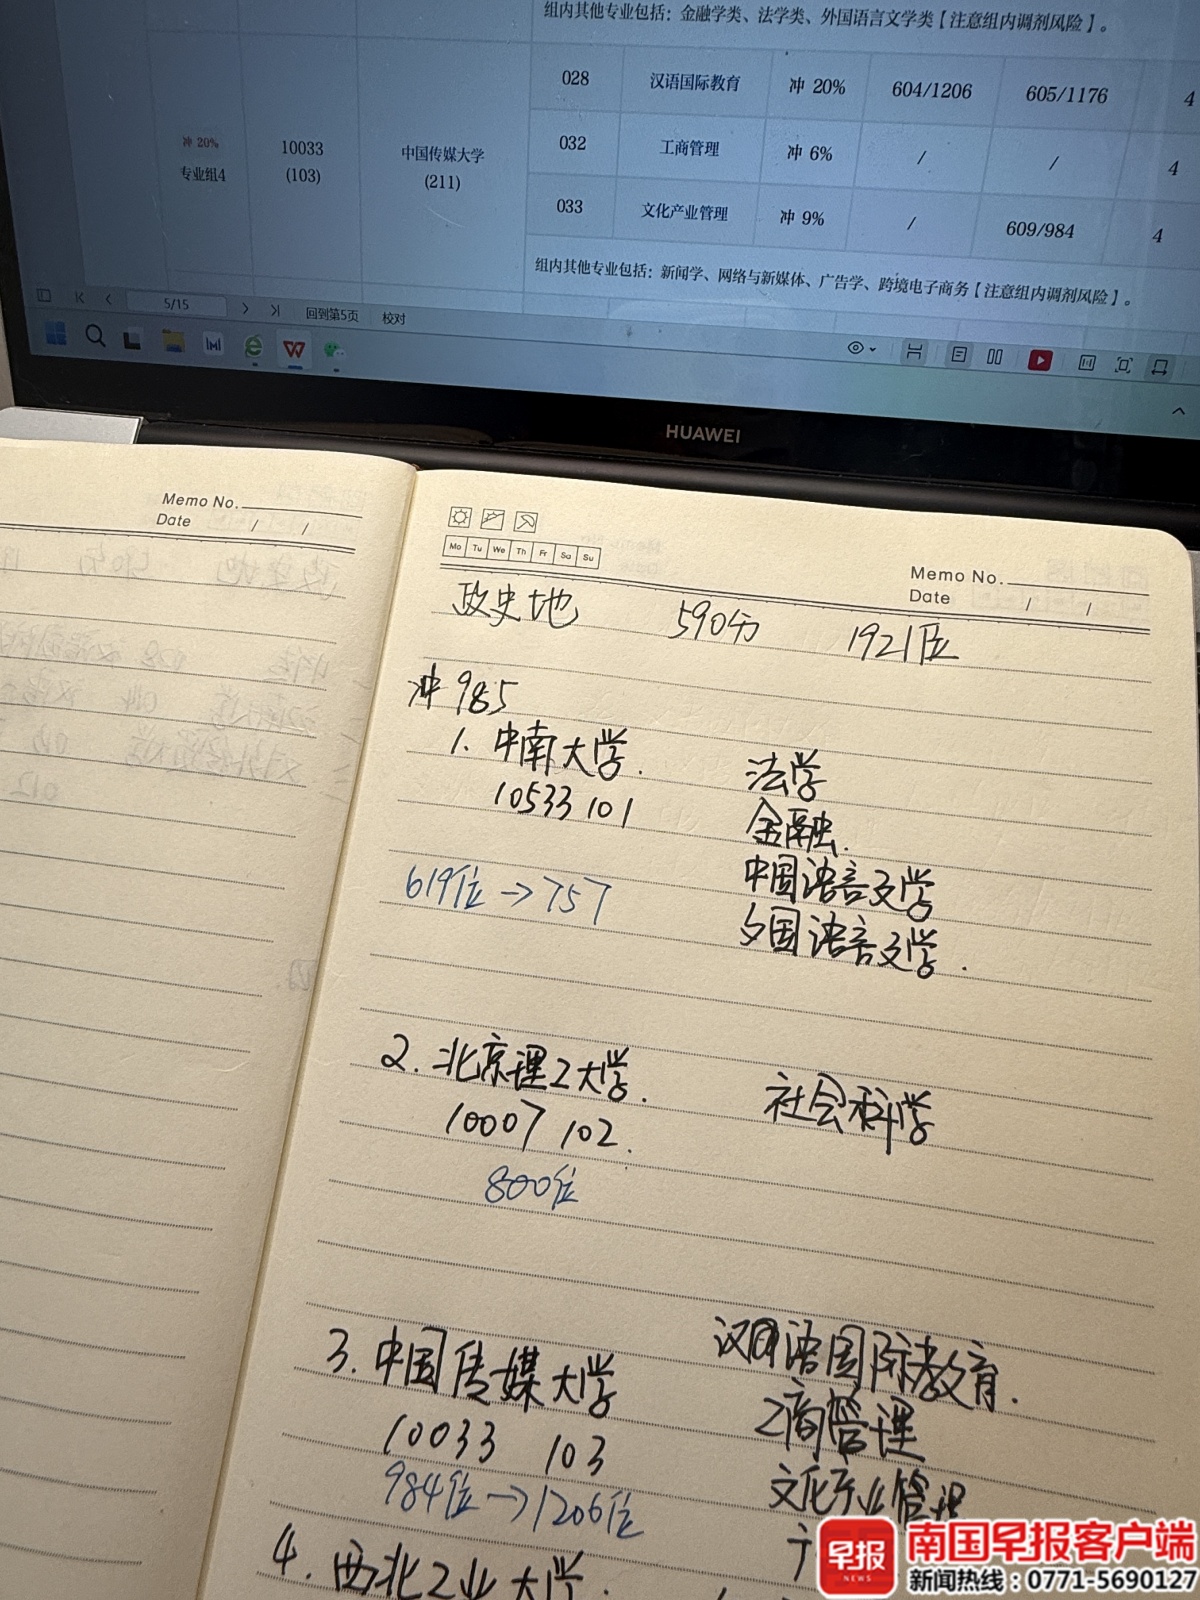 组内其他专业包括：金融学类、法学类、外国语言文学类【注意组内调剂风险】。
028 汉语国际教育 冲 20% 604/1206 605/1176 4
冲 20% 专业组4
10033 (103)
中国传媒大学 (211)
032 工商管理 冲 6% / / 4
033 文化产业管理 冲 9% / 609/984 4
组内其他专业包括：新闻学、网络与新媒体、广告学、跨境电子商务【注意组内调剂风险】。
5/15 回到第5页 校对
HUAWEI
Memo No.
Date / /
Mo Tu We Th Fr Sa Su
Memo No.
Date / /
政史地 590分 1921位
冲985
1. 中南大学. 法学
10533 101 金融.
619位→757 中国语言文学
外国语言文学.
2. 北京理工大学. 社会科学
10007 102.
800位
3. 中国传媒大学 汉语国际教育.
10033 103 工商管理
984位→1206位 文化产业管理
4. 西北工业大学.
早报 NEWS
南国早报客户端
新闻热线：0771-5690127